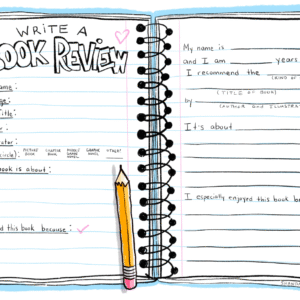 WRITE A
BOOK REVIEW
ame:
ge:
itle:
r:
ator:
circle): PICTURE BOOK CHAPTER BOOK GRAPHIC NOVEL OTHER!
book is about:
d this book because:
My name is
and I am years
I recommend the
(KIND OF
(TITLE OF BOOK)
by
(AUTHOR AND ILLUSTR
It's about
I especially enjoyed this book be